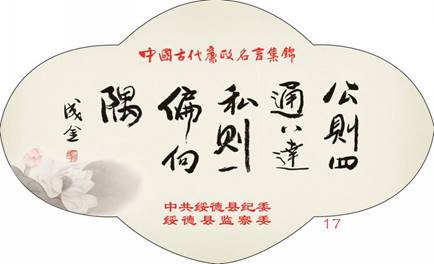 中國古代廉政名言集錦
公則四
通八達
私則一
偏向
隅
成金
中共绥德县纪委
绥德县监察委
17